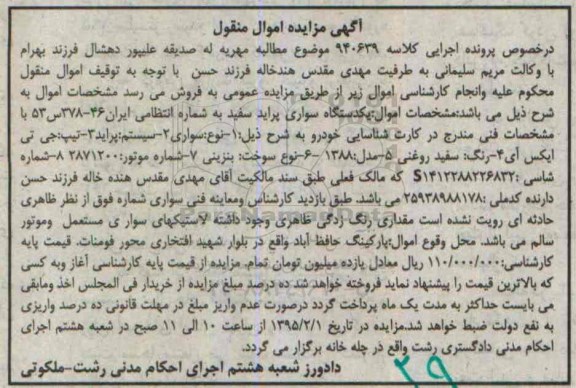 آگهی مزایده اموال منقول
درخصوص پرونده اجرایی کلاسه ۹۴۰۶۳۹ موضوع مطالبه مهریه له صدیقه علیپور دهشال فرزند بهرام
با وکالت مریم سلیمانی به طرفیت مهدی مقدس هندخاله فرزند حسن با توجه به توقیف اموال منقول
محکوم علیه وانجام کارشناسی اموال زیر از طریق مزایده عمومی به فروش می رسد مشخصات اموال به
شرح ذیل می باشد:مشخصات اموال:یکدستگاه سواری پراید سفید به شماره انتظامی ایران۴۶-۳۷۸س۵۳ با
مشخصات فنی مندرج در کارت شناسایی خودرو به شرح ذیل:۱-نوع:سواری۲-سیستم:پراید۳-تیپ:جی تی
ایکس آی۴-رنگ: سفید روغنی ۵-مدل:۱۳۸۸ -۶-نوع سوخت: بنزینی ۷-شماره موتور:۲۸۷۱۲۰۰ ۸-شماره
شاسی :S۱۴۱۲۲۸۸۲۲۶۸۳۲ که مالک فعلی طبق سند مالکیت آقای مهدی مقدس هنده خاله فرزند حسن
دارنده کدملی :۲۵۹۳۸۹۸۸۱۷۸ می باشد. طبق بازدید کارشناس ومعاینه فنی سواری شماره فوق از نظر ظاهری
حادثه ای رویت نشده است مقداری رنگ زدگی ظاهری وجود داشته لاستیکهای سوار ی مستعمل وموتور
سالم می باشد. محل وقوع اموال:پارکینگ حافظ آباد واقع در بلوار شهید افتخاری محور فومنات. قیمت پایه
کارشناسی:۱۱۰/۰۰۰/۰۰۰ ریال معادل یازده میلیون تومان تمام. مزایده از قیمت پایه کارشناسی آغاز وبه کسی
که بالاترین قیمت را پیشنهاد نماید فروخته خواهد شد ده درصد مبلغ مزایده از خریدار فی المجلس اخذ ومابقی
می بایست حداکثر به مدت یک ماه پرداخت گردد درصورت عدم واریز مبلغ در مهلت قانونی ده درصد واریزی
به نفع دولت ضبط خواهد شد.مزایده در تاریخ ۱۳۹۵/۲/۱ از ساعت ۱۰ الی ۱۱ صبح در شعبه هشتم اجرای
احکام مدنی دادگستری رشت واقع در چله خانه برگزار می گردد.
دادورز شعبه هشتم اجرای احکام مدنی رشت-ملکوتی
۲۹